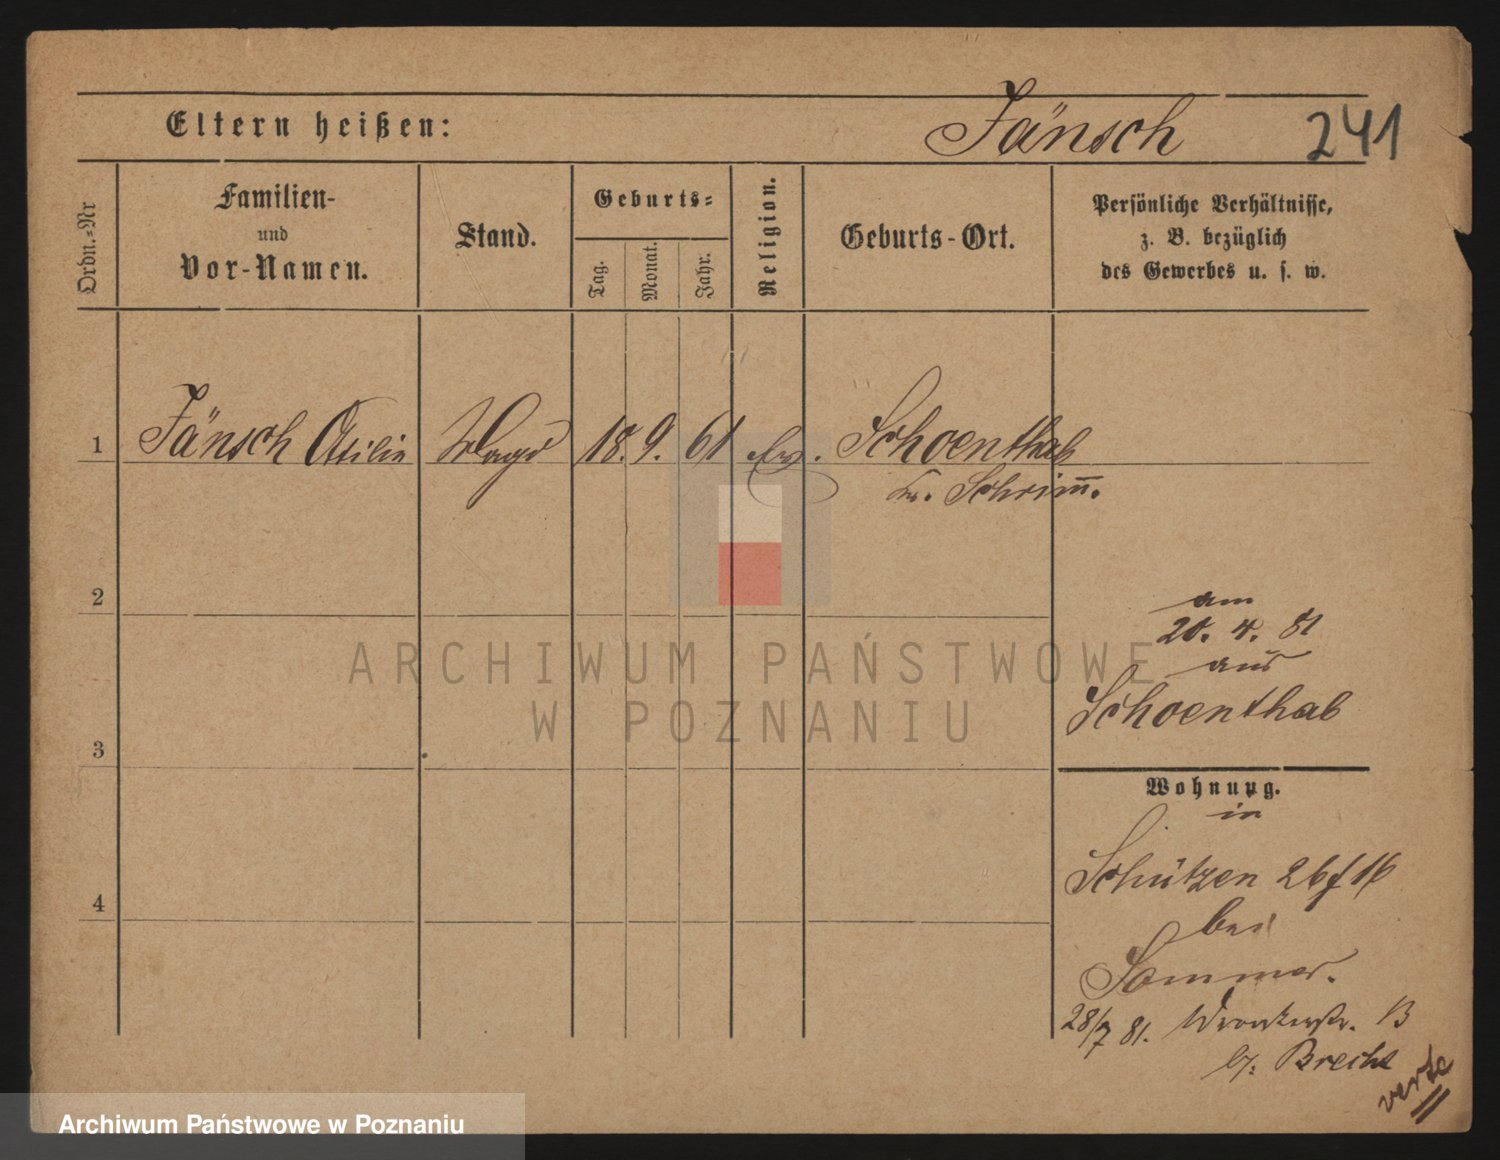 Eltern heißen:
Jänsch 241
Ordn.=Nr
Familien-
und
Vor-Namen.
Stand.
Geburts=
Tag.
Monat.
Jahr.
Religion.
Geburts-Ort.
Persönliche Verhältnisse,
z. B. bezüglich
des Gewerbes u. s. w.
1 Jänsch Ottilie Magd 18. 9. 61 Ev. Schoenthal
Kr. Schrimm.
2
am
20. 4. 81
aus
Schoenthal
3
Wohnung.
in
Schützen 26/16
bei
Sommer.
4
28/7 81. Wronkerstr. B
b/: Brecht
verte
ARCHIWUM PAŃSTWOWE
W POZNANIU
Archiwum Państwowe w Poznaniu